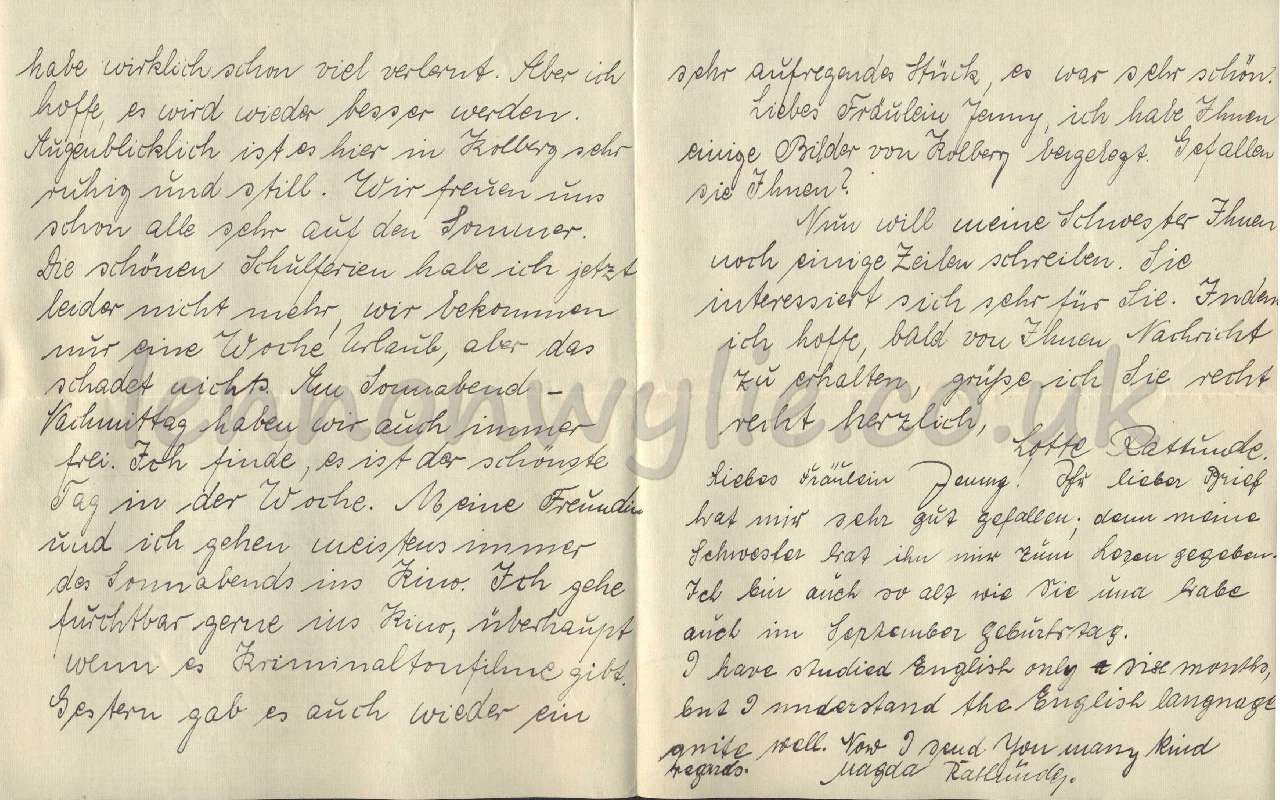 habe wirklich schon viel verlernt. Aber ich
hoffe, es wird wieder besser werden.
Augenblicklich ist es hier in Kolberg sehr
ruhig und still. Wir freuen uns
schon alle sehr auf den Sommer.
Die schönen Schulferien habe ich jetzt
leider nicht mehr, wir bekommen
nur eine Woche Urlaub, aber das
schadet nichts. Am Sonnabend -
Nachmittag haben wir auch immer
frei. Ich finde, es ist der schönste
Tag in der Woche. Meine Freundin
und ich gehen meistens immer
des Sonnabends ins Kino. Ich gehe
furchtbar gerne ins Kino, überhaupt
wenn es Kriminaltonfilme gibt.
Gestern gab es auch wieder ein
sehr aufregendes Stück, es war sehr schön.
Liebes Fräulein Jenny, ich habe Ihnen
einige Bilder von Kolberg beigelegt. Gefallen
sie Ihnen?
Nun will meine Schwester Ihnen
noch einige Zeilen schreiben. Sie
interessiert sich sehr für Sie. Indem
ich hoffe, bald von Ihnen Nachricht
zu erhalten, grüße ich Sie recht
recht herzlich,
Lotte Rattunde.
Liebes Fräulein Jenny! Ihr lieber Brief
hat mir sehr gut gefallen; denn meine
Schwester hat ihn mir zum Lesen gegeben.
Ich bin auch so alt wie Sie und habe
auch im September Geburtstag.
I have studied English only six months,
but I understand the English language
quite well. Now I send You many kind
regards. Magda Rattunde.
lennonwylie.co.uk